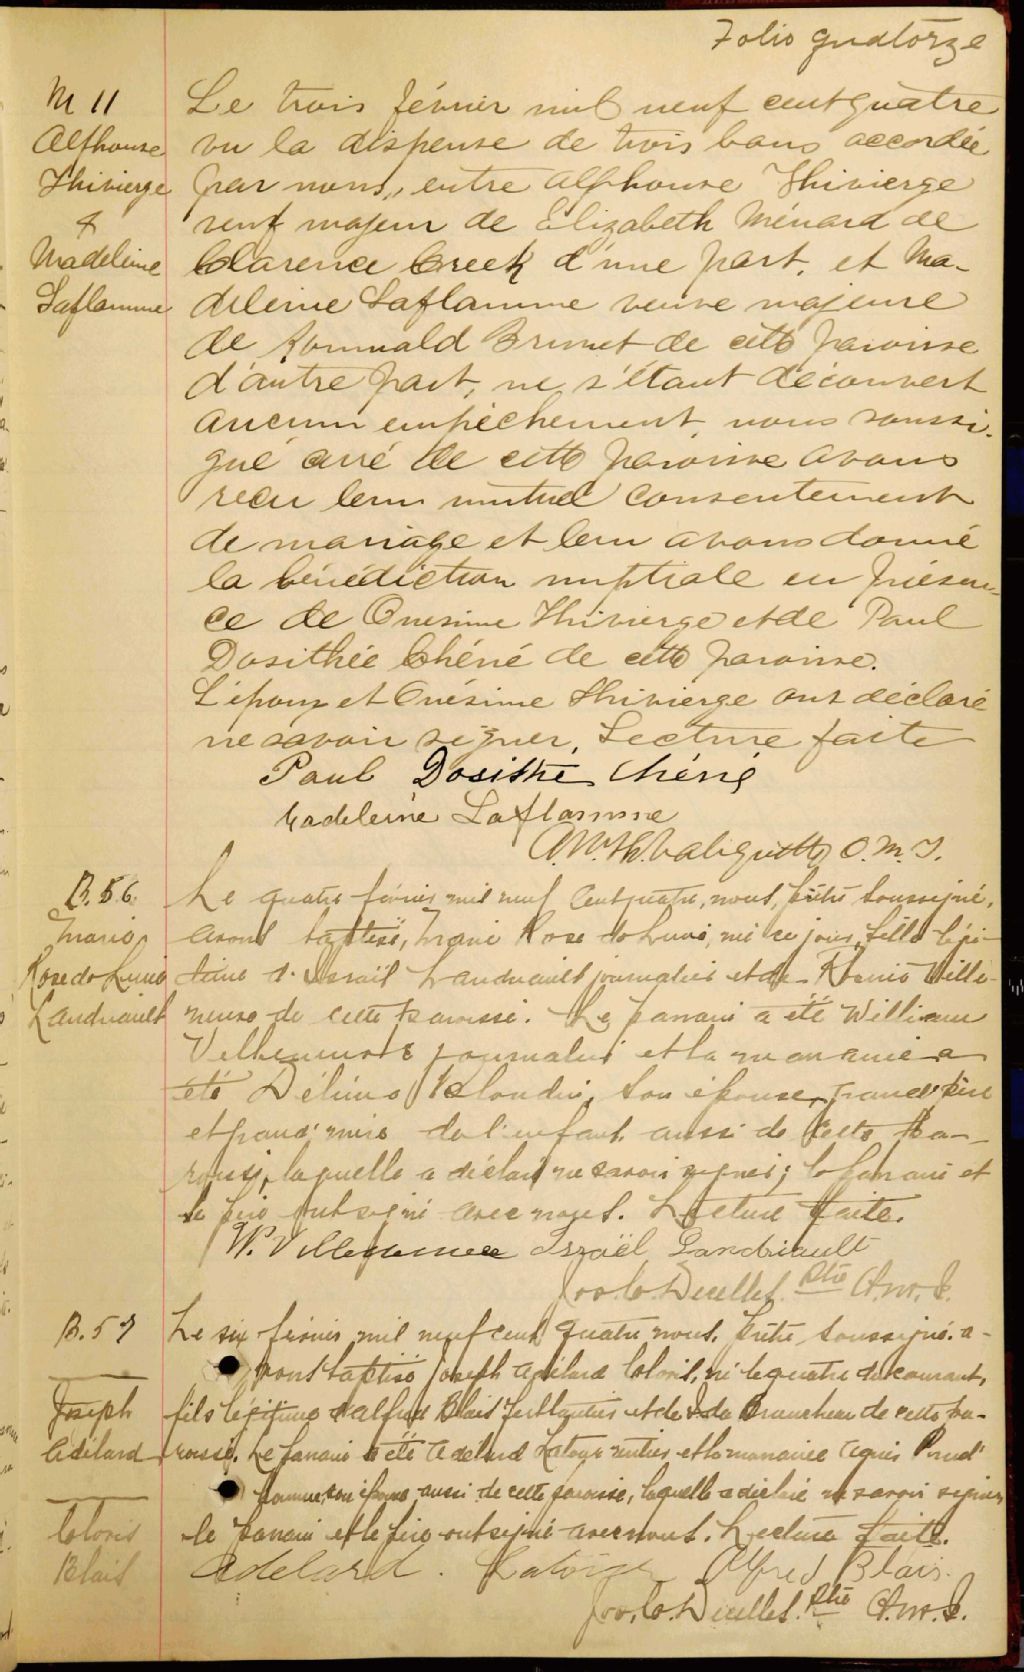 Folio quatorze
M 11
Alphonse
Thivierge
&
Madeleine
Laflamme
Le trois février mil neuf cent quatre
vu la dispense de trois bans accordée
par nous, entre Alphonse Thivierge
veuf majeur de Elizabeth Ménard de
Clarence Creek d'une part, et Ma-
deleine Laflamme veuve majeure
de Romuald Brunet de cette paroisse
d'autre part, ne s'étant découvert
aucun empêchement, nous soussi-
gné curé de cette paroisse avons
reçu leur mutuel consentement
de mariage et leur avons donné
la bénédiction nuptiale en présen-
ce de Onesime Thivierge et de Paul
Dosithée Chéné de cette paroisse.
L'époux et Onésime Thivierge ont déclaré
ne savoir signer, Lecture faite
Paul Dosithé Chéné
Madeleine Laflamme
Valiquette O.M.I.
B. 56
Marie
Rose de Lima
Landriault
Le quatre février mil neuf cent quatre, nous, prêtre soussigné,
avons baptisé, Marie Rose de Lima, née ce jour, fille légi-
time d'Israël Landriault journalier et de Ville-
neuve de cette paroisse. Le parrain a été William
Villeneuve journalier et la marraine a
été Délima Blondin, son épouse, grand'père
et grand'mère de l'enfant, aussi de cette Pa-
roisse, laquelle a déclaré ne savoir signer; le parrain et
le père ont signé avec nous. Lecture faite.
W. Villeneuve Israël Landriault
Ptre O.M.I.
B. 57
Joseph
Adélard
Cloris
Blais
Le six février mil neuf cent quatre nous, prêtre soussigné, a-
vons baptisé Joseph Adélard Cloris, né le quatre du courant,
fils légitime d'Alfred Blais ferblantier et de Ida Brancheau de cette pa-
roisse. Le parrain a été Adélard Latour rentier et la marraine Agnès Prud'
homme, son épouse, aussi de cette paroisse, laquelle a déclaré ne savoir signer,
le parrain et le père ont signé avec nous. Lecture faite.
Adelard Latour Alfred Blais.
Ptre O.M.I.